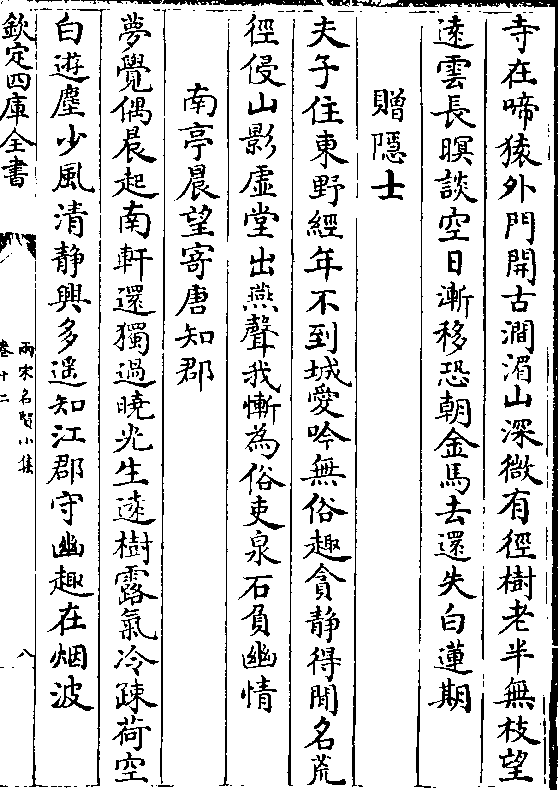 寺在啼猿外門開古澗湄山深微有徑樹老半無枝望
遠雲長暝談空日漸移恐朝金馬去還失白蓮期
贈隱士
夫子住東野經年不到城愛吟無俗趣貪静得閒名荒
徑侵山影虚堂出燕聲我慚為俗吏泉石負幽情
南亭晨望寄唐知郡
夢覺偶晨起南軒還獨過曉光生遠樹露氣冷疎荷空
白逰塵少風清静興多遥知江郡守幽趣在烟波
欽定四庫全書
兩宋名賢小集
卷十二
八